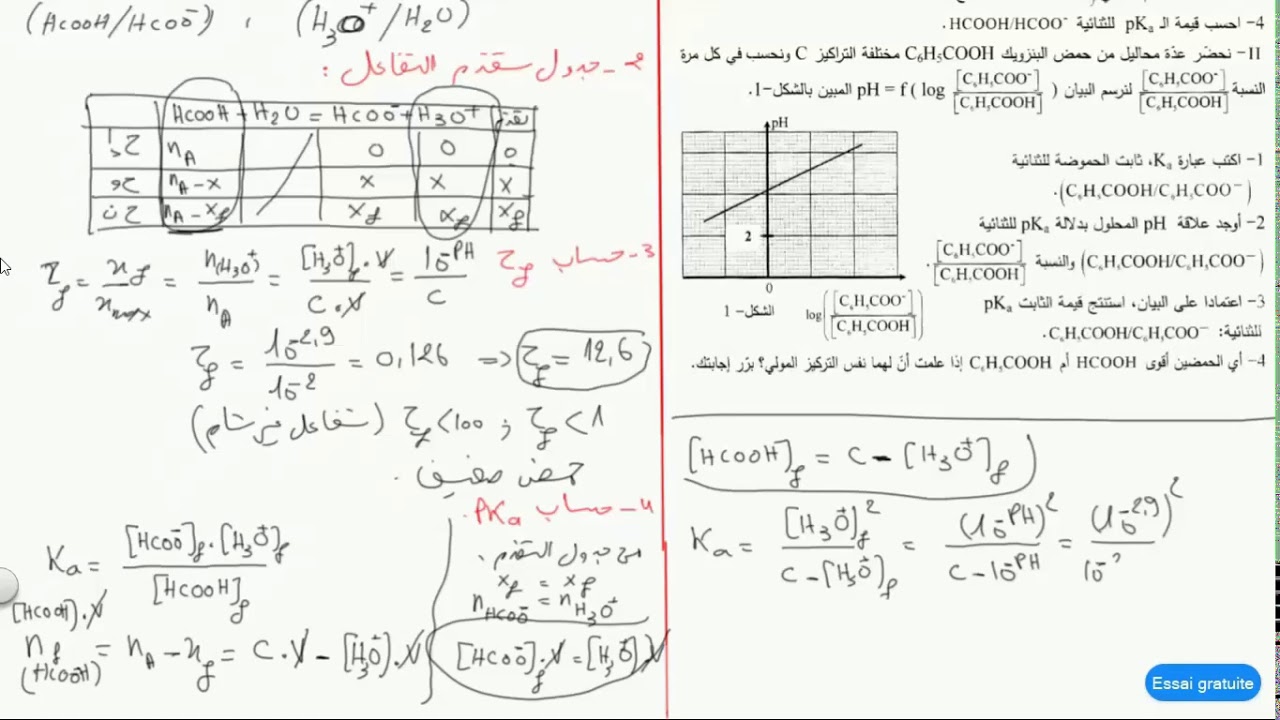 (HCOOH/HCOO⁻) ، (H₃O⁺/H₂O)
2- جدول تقدم التفاعل :
HCOOH + H₂O = HCOO⁻ + H₃O⁺ تقدم
ح إ n_A 0 0 0
ح و n_A - x x x x
ح ن n_A - x_f x_f x_f x_f
3- حساب τ_f
τ_f = x_f / x_max = n(H₃O⁺) / n_A = [H₃O⁺]_f . V / C . V = 10^-PH / C
τ_f = 10^-2,9 / 10^-2 = 0,126 ⇒ τ_f = 12,6
τ_f < 100 ; τ_f < 1 (تفاعل غير تام)
حمض ضعيف .
4- حساب PKa .
من جدول التقدم .
x_f = x_f
n_HCOO⁻ = n_H₃O⁺
[HCOO⁻]_f . V = [H₃O⁺] V
Ka = [HCOO⁻]_f . [H₃O⁺]_f / [HCOOH]_f
[HCOOH] . V
n_f (HCOOH) = n_A - x_f = C . V - [H₃O⁺] . V
4- احسب قيمة الـ pKa للثنائية HCOOH/HCOO⁻.
II- نحضّر عدّة محاليل من حمض البنزويك C6H5COOH مختلفة التراكيز C ونحسب في كل مرة
النسبة [C₆H₅COO⁻]/[C₆H₅COOH] لنرسم البيان pH = f ( log [C₆H₅COO⁻]/[C₆H₅COOH] ) المبين بالشكل-1.
pH
2
0
log([C₆H₅COO⁻]/[C₆H₅COOH])
الشكل- 1
1- اكتب عبارة Ka، ثابت الحموضة للثنائية
(C₆H₅COOH/C₆H₅COO⁻).
2- أوجد علاقة pH المحلول بدلالة pKa للثنائية
(C₆H₅COOH/C₆H₅COO⁻) والنسبة [C₆H₅COO⁻]/[C₆H₅COOH].
3- اعتمادا على البيان، استنتج قيمة الثابت pKa
للثنائية: C₆H₅COOH/C₆H₅COO⁻.
4- أي الحمضين أقوى HCOOH أم C₆H₅COOH إذا علمت أنّ لهما نفس التركيز المولي؟ برّر إجابتك.
[HCOOH]_f = C - [H₃O⁺]_f
Ka = [H₃O⁺]²_f / C - [H₃O⁺]_f = (10^-PH)² / C - 10^-PH = (10^-2,9)² / 10^-2
Essai gratuite